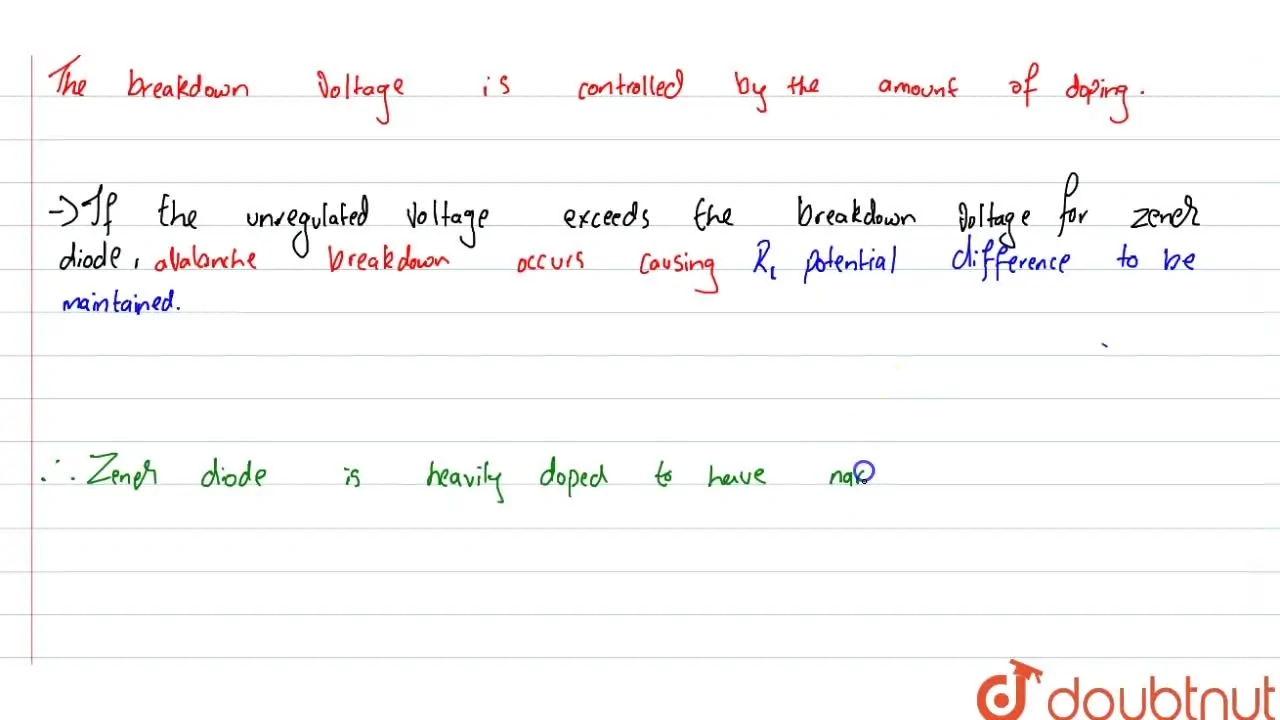 The breakdown voltage is controlled by the amount of doping.
→ If the unregulated voltage exceeds the breakdown voltage for zener
diode, avalanche breakdown occurs causing R₁ potential difference to be
maintained.
∴ Zener diode is heavily doped to have nar
doubtnut